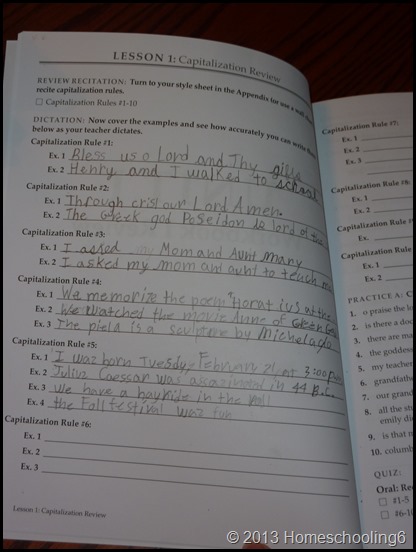 LESSON 1: Capitalization Review
REVIEW RECITATION: Turn to your style sheet in the Appendix for use a
recite capitalization rules.
☐ Capitalization Rules #1-10
DICTATION: Now cover the examples and see how accurately you can write them
below as your teacher dictates.
Capitalization Rule #1:
Ex. 1 Bless us o Lord and Thy gifts
Ex. 2 Henry and I walked to school
Capitalization Rule #2:
Ex. 1 Through crist our Lord Amen.
Ex. 2 The Greek god Poseldon is lord of the
Capitalization Rule #3:
Ex. 1 I asked my Mom and Aunt mary
Ex. 2 I asked my mom and aunt to teach me
Capitalization Rule #4:
Ex. 1 We memorize the poem "Horatius at the
Ex. 2 We watched the movie Anne of Green Ga
Ex. 3 The pieta is a sculpture by
Capitalization Rule #5:
Ex. 1 I was born Tuesday, February 21, at 3:00 p.m.
Ex. 2 Julius Caessar was assazinated in 44 B.C.
Ex. 3 we have a hayride in the
Ex. 4 the Fall festival waz fun
Capitalization Rule #6:
Ex. 1
Ex. 2
Ex. 3
Lesson 1: Capitalization Review
Capitalization Rule #7:
Ex. 1
Ex. 2
Ex. 3
Capitalization Rule #8:
Ex. 1
Ex. 2
Capitalization Rule
Ex.
Capitalization Rule
Ex. 1
Ex. 2
PRACTICE A: C
1. o praise the lo
2. is there a doc
3. there are ma
4. the goddess
5. my teacher
6. grandfath
7. our grand
8. all the stu
emily di
9. is that n
10. columb
QUIZ:
Oral: Rec
☐ #1-5
☐ #6-10
© 2013 Homeschooling6